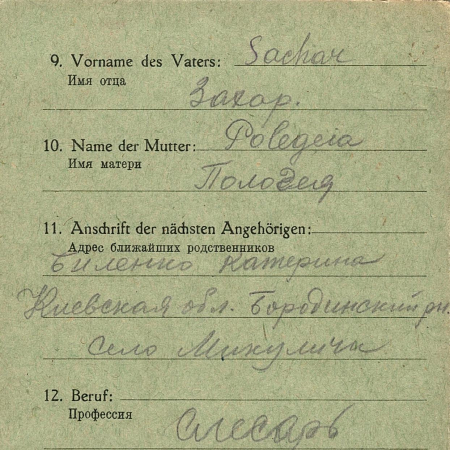 9. Vorname des Vaters: Sachar
Имя отца
Захар.
10. Name der Mutter: Polegeia
Имя матери
Пологея
11. Anschrift der nächsten Angehörigen:
Адрес ближайших родственников
Биленко Катерина
Киевская обл. Бородинский рн.
село Микуличи
12. Beruf:
Профессия
слесарь